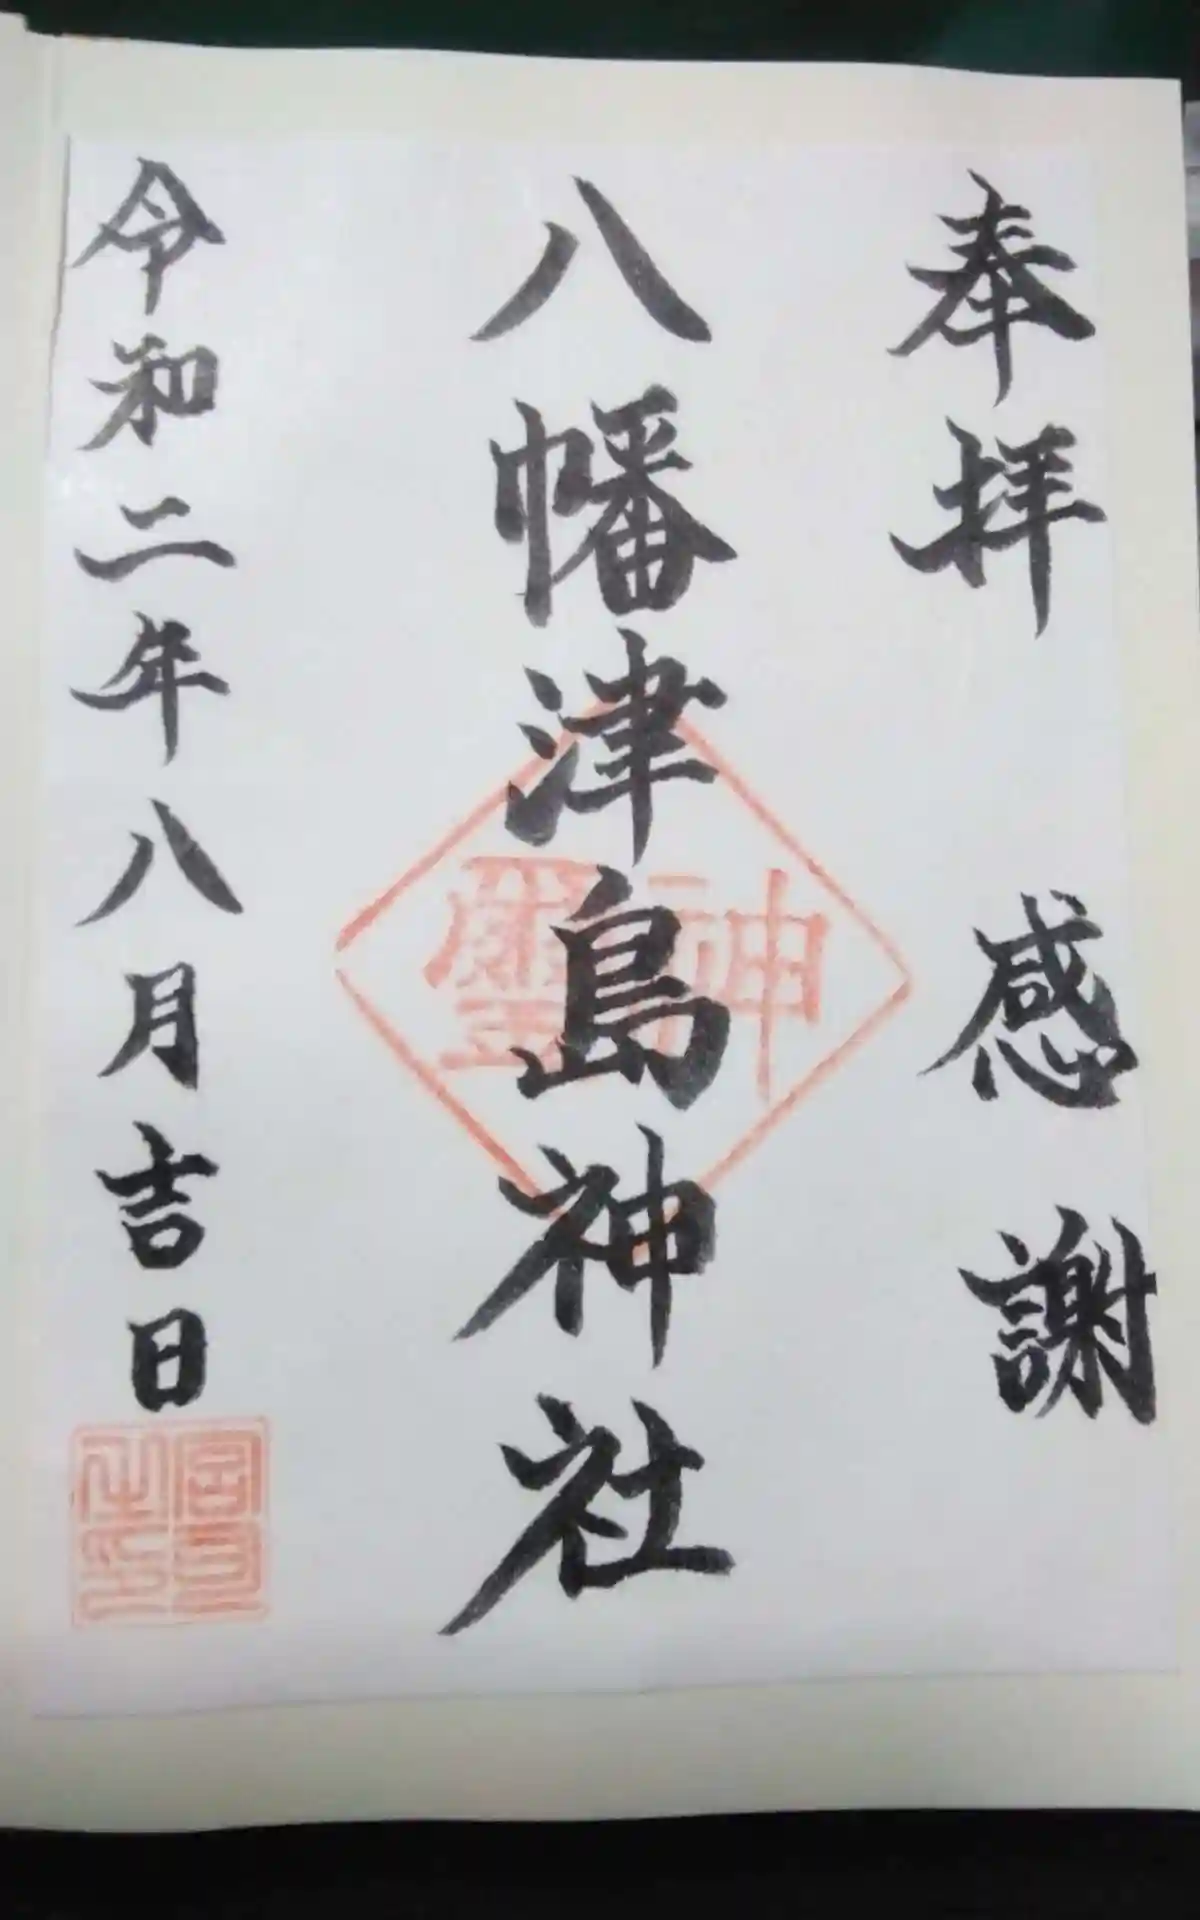 奉拝 感謝
八幡津島神社
神璽
令和二年八月吉日
宮司之印